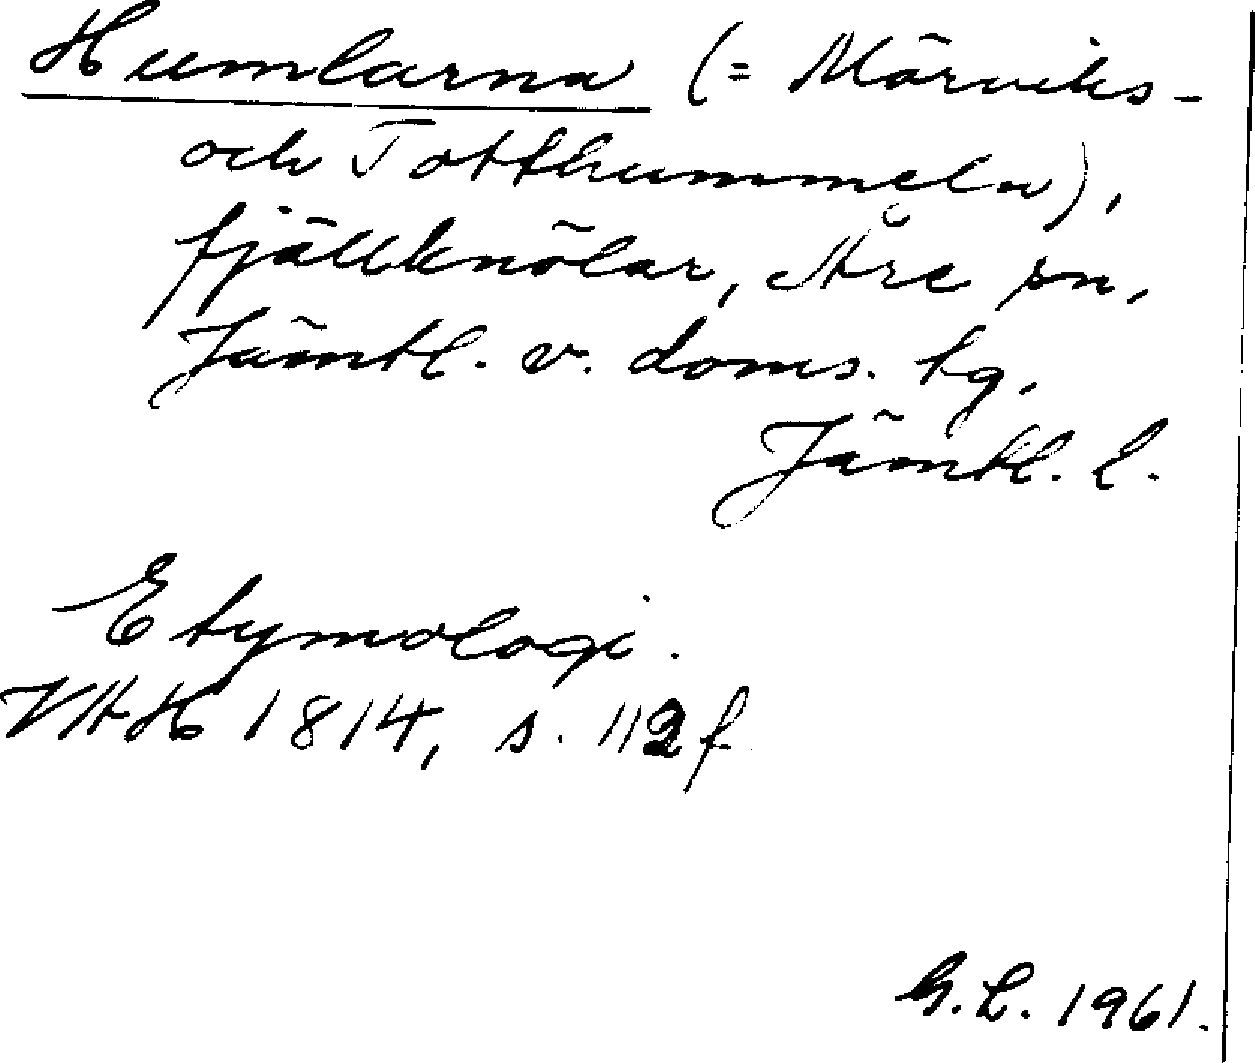 Humlarna (= Mörviks-
och Totthummeln),
fjällknölar, Åre sn,
Jämtl. v. doms. tg.
Jämtl. l.
Etymologi.
VHH 1814, s. 112 f
G.L. 1961.